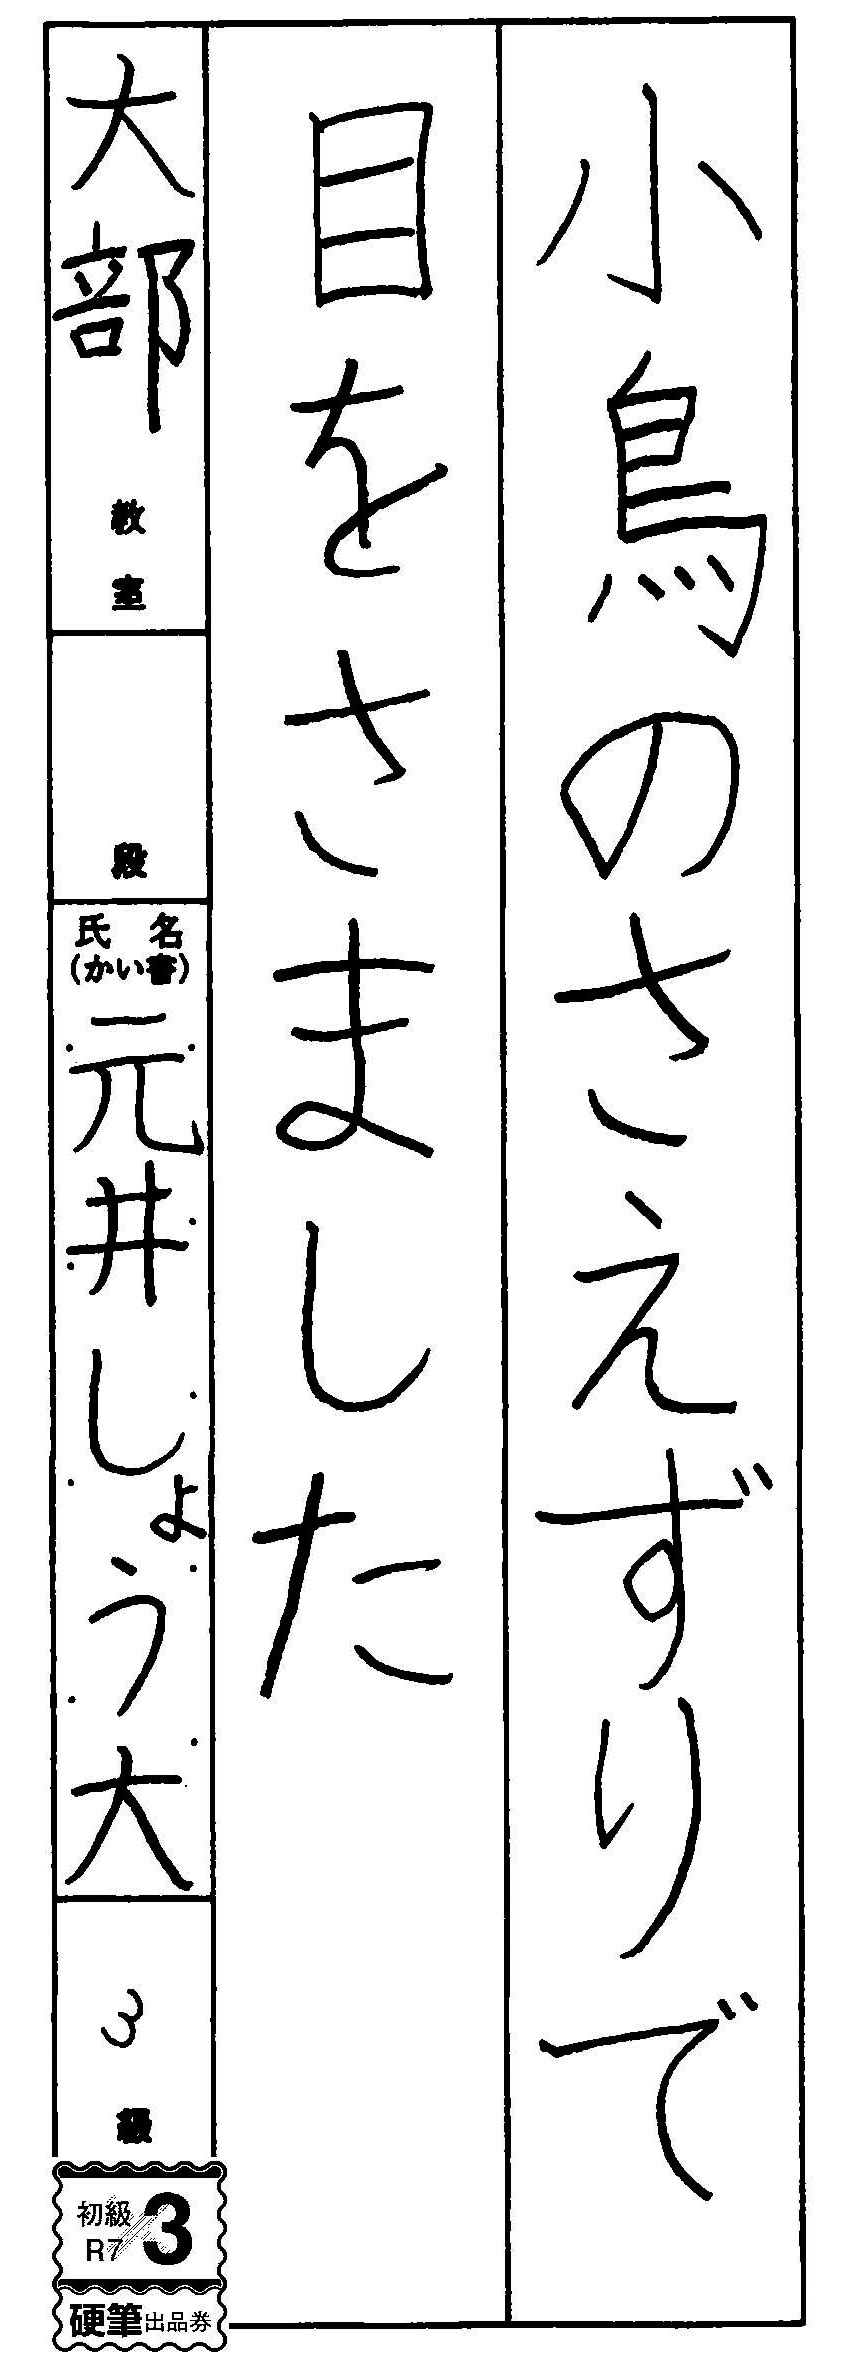 小鳥のさえずりで
目をさました
大部教室
段
氏名
(かい書)
元井しょう大
3級
初級
R7/3
硬筆出品券